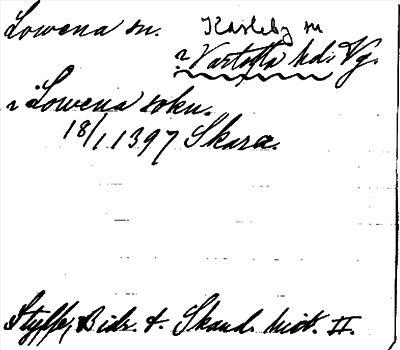 Lowena sn. Karleby sn
? Vartofta hd: Vg.
i Lowena sokn.
18/1 1397 Skara.
Styffe, Bidr. t. Skand. hist. II.